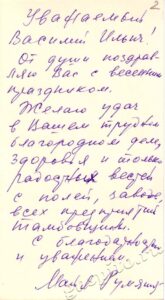 2
Уважаемый
Василий Ильич!
От души поздрав-
ляю Вас с весенним
праздником.
Желаю удач
в Вашем трудном
благородном деле,
здоровья и только
радостных вестей
с полей, заводов,
всех предприятий
Тамбовщины.
С благодарностью
и уважением
Майя Румянц